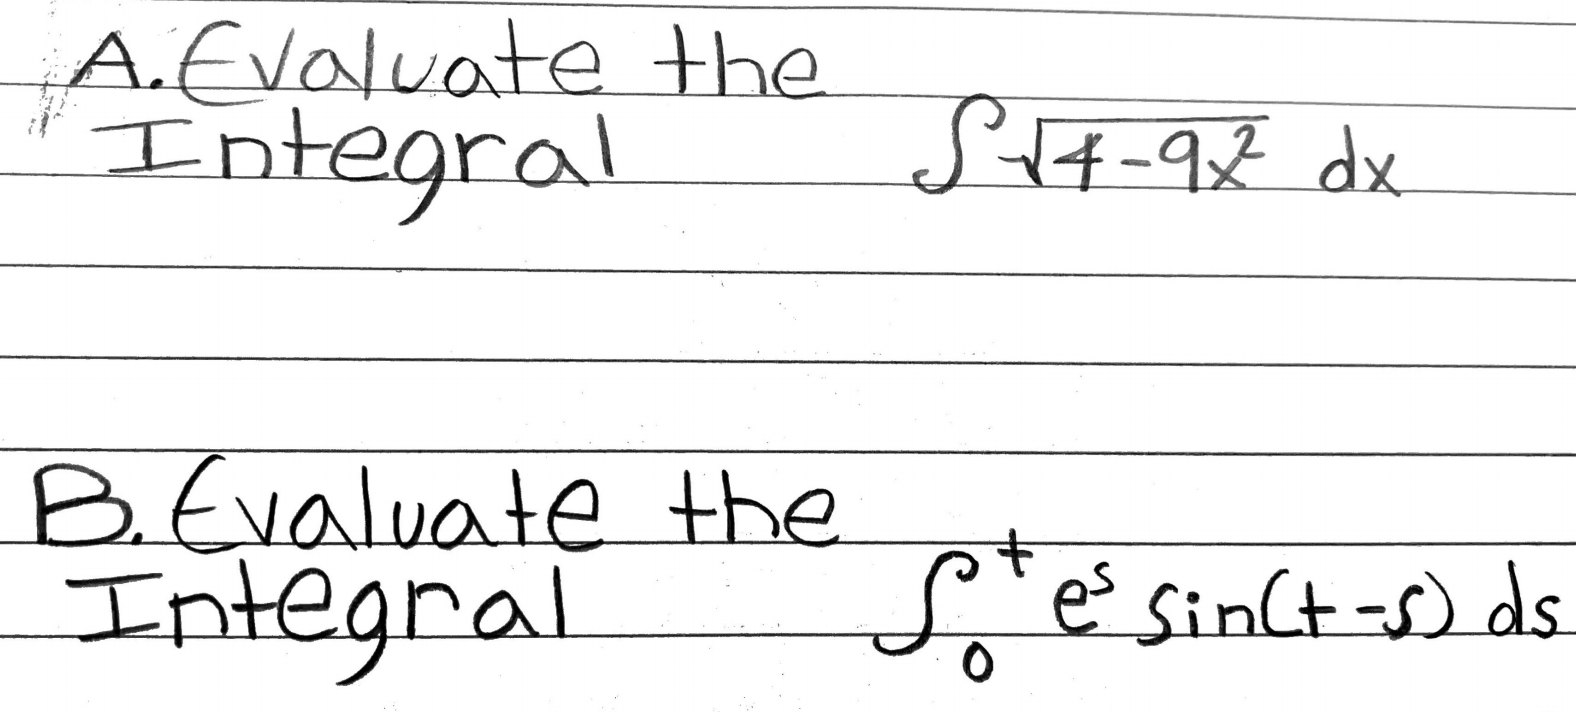 A. Evaluate the
Integral ∫√4-9x² dx
B. Evaluate the
Integral ∫₀ᵗ eˢ sin(t-s) ds